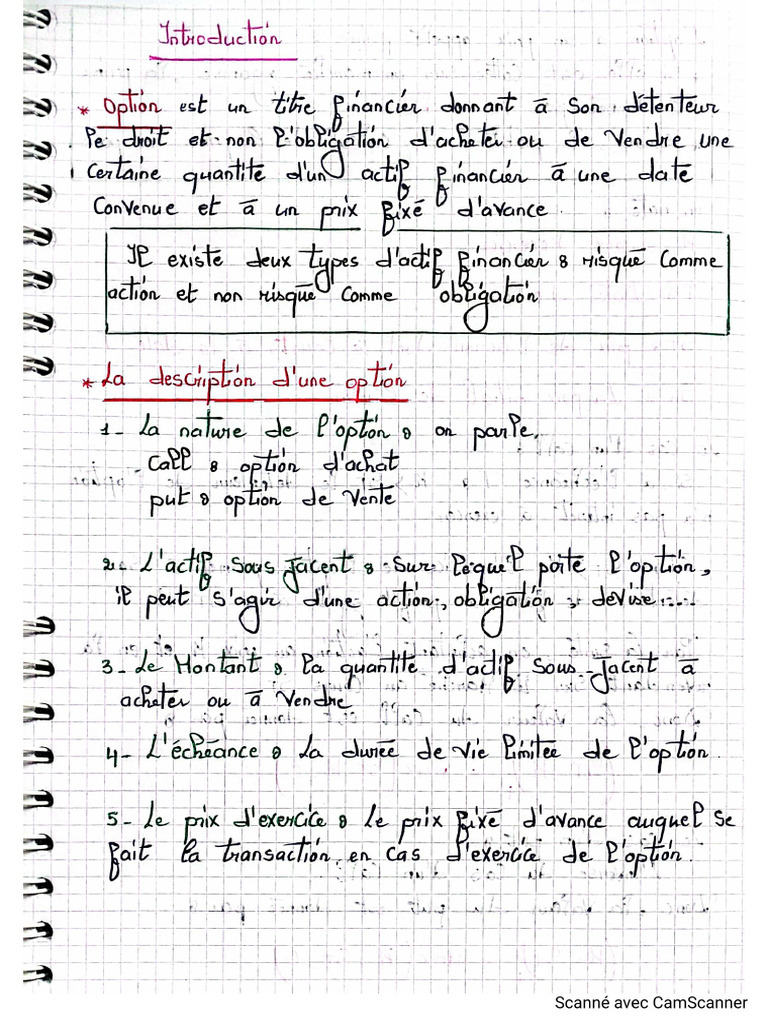 Introduction
* Option est un titre financier donnant à son détenteur
le droit et non l'obligation d'acheter ou de vendre une
certaine quantité d'un actif financier à une date
convenue et à un prix fixé d'avance.
Il existe deux types d'actif financier : risqué comme
action et non risqué comme obligation
* La description d'une option
1- La nature de l'option : on parle.
- Call : option d'achat
put : option de vente
2- L'actif sous jacent : sur lequel porte l'option,
il peut s'agir d'une action, obligation, devise....
3- Le Montant : la quantité d'actif sous-jacent à
acheter ou à vendre
4- L'échéance : la durée de vie limitée de l'option.
5- Le prix d'exercice : le prix fixé d'avance auquel se
fait la transaction en cas d'exercice de l'option.
Scanné avec CamScanner